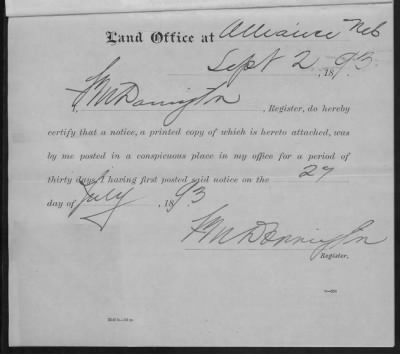 Land Office at Alliance Neb
Sept 2, 1893.
I, F M Dorrington, Register, do hereby
certify that a notice, a printed copy of which is hereto attached, was
by me posted in a conspicuous place in my office for a period of
thirty days, I having first posted said notice on the 27
day of July, 1893
F M Dorrington
Register.